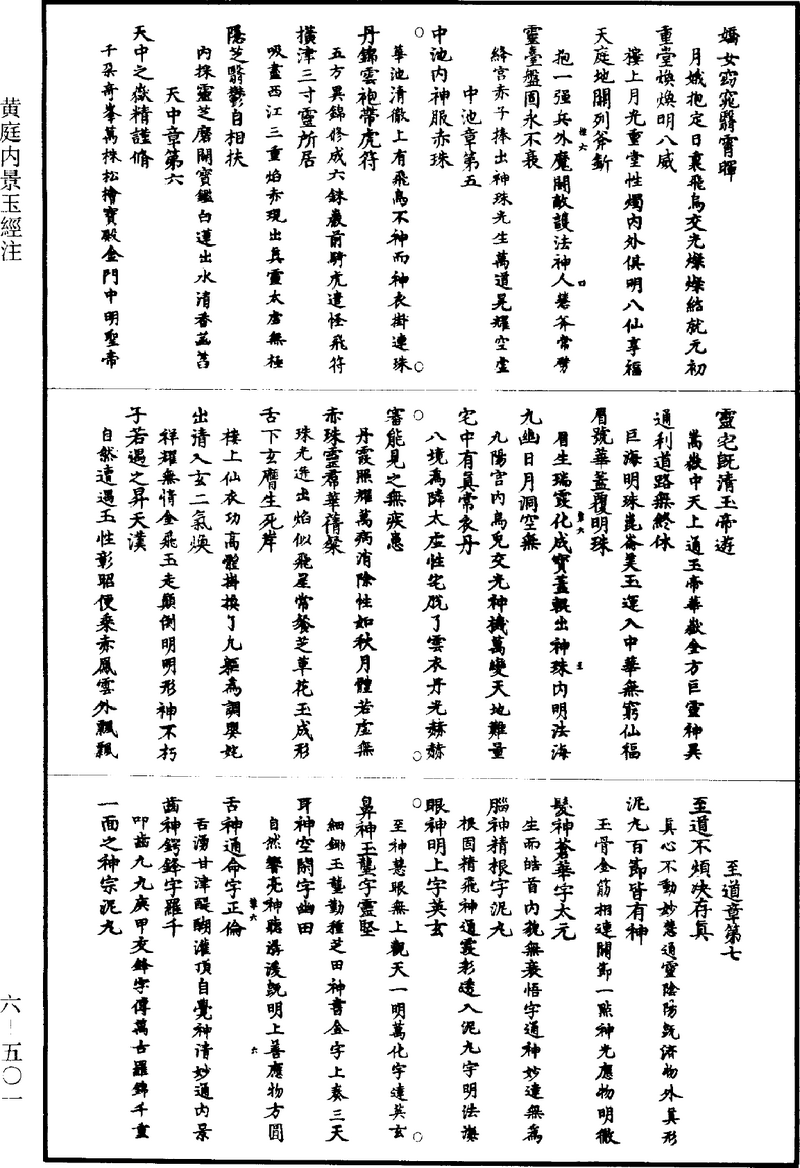 嬌女窈窕翳霄暉
月娥抱定日裏飛烏交光燦燦結就元初
重堂煥煥明八威
樓上月光重堂性燭內外俱明八仙享福
天庭地關列斧斷
抱一強兵外魔關敵護法神人慧斧常劈
靈臺盤固永不衰
絳宮赤子捧出神珠光生萬道晃耀空虛
中池章第五
中池內神服赤珠
華池清徹上有飛鳥不神而神衣掛連珠
丹錦雲袍帶虎符
五方異錦修成六銖巖前騎虎遣怪飛符
橫津三寸靈所居
吸盡西江三重焰赤現出真靈太虛無極
隱芝翳鬱自相扶
內採靈芝磨開寶鑑白蓮出水清香菡萏
天中章第六
天中之嶽精謹脩
千朵奇峯萬株松檜寶殿金門中明聖帝
靈宅既清玉帝遊
嵩嶽中天上通玉帝華嶽金方巨靈神異
通利道路無終休
巨海明珠崑崙美玉運入中華無窮仙福
眉號華蓋覆明珠
眉生瑞靄化成寶蓋輥出神珠內明法海
九幽日月洞空無
九陽宮內烏兔交光神機萬變天地難量
宅中有真常衣丹
八境為隣太虛性宅脫了雲衣丹光赫赫
審能見之無疾患
丹霞照耀萬病消除性如秋月體若虛無
赤珠靈裙華蒨粲
珠光迸出焰似飛星常餐芝草花玉成形
舌下玄膺生死岸
樓上仙衣功高體掛換了九軀為調嬰姹
出清入玄二氣煥
祥耀無情金飛玉走顛倒明明形神不朽
子若遇之昇天漢
自然遭遇玉性彰昭便乘赤鳳雲外飄飄
至道章第七
至道不煩決存真
真心不動妙慧通靈陰陽既濟物外真形
泥丸百節皆有神
玉骨金筋相連關節一點神光應物明徹
髮神蒼華字太元
生而皓首內貌無衰悟字通神妙達無為
腦神精根字泥丸
根固精飛神通霞彩透入泥丸字明法海
眼神明上字英玄
至神慧眼無上觀天一明萬化字達英玄
鼻神玉壟字靈堅
細鋤玉壟勤種芝田神書金字上奏三天
耳神空閑字幽田
自然響亮神聽潺湲既明上善應物方圓
舌神通命字正倫
舌湧甘津醍醐灌頂自覺神清妙通內景
齒神崿鋒字羅千
叩齒九九庚甲交鋒字傳萬古羅錦千重
一面之神宗泥丸
黃庭內景玉經注
六─五〇一